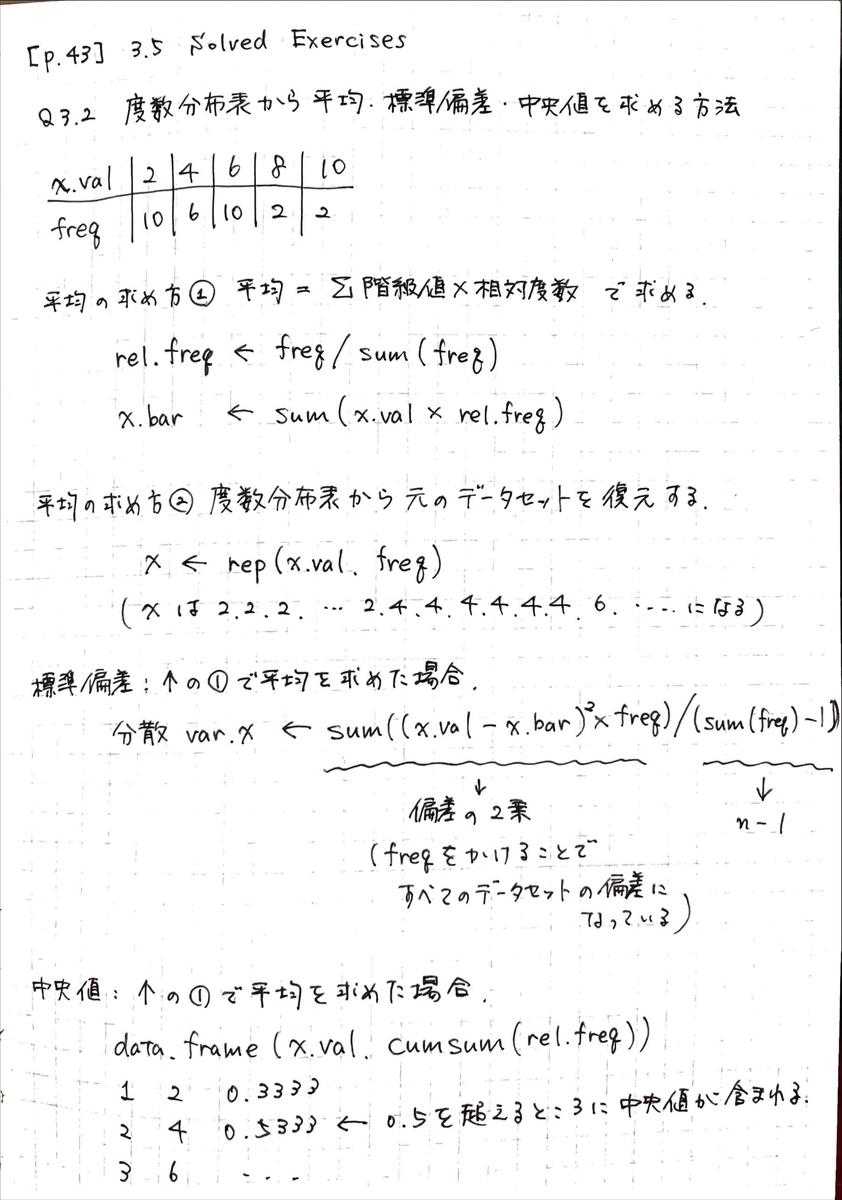 [p.43] 3.5 Solved Exercises
Q3.2 度数分布表から平均.標準偏差.中央値を求める方法
x.val | 2 | 4 | 6 | 8 | 10
freq | 10 | 6 | 10 | 2 | 2
平均の求め方① 平均 = Σ階級値×相対度数 で求める.
rel.freq ← freq/sum(freq)
x.bar ← sum(x.val × rel.freq)
平均の求め方② 度数分布表から元のデータセットを復元する.
x ← rep(x.val. freq)
(xは 2.2.2. … 2.4.4.4.4.4.4.6. ‥‥になる)
標準偏差:↑の①で平均を求めた場合.
分散 var.x ← sum((x.val - x.bar)²× freq)/(sum(freq)-1))
↓ ↓
偏差の2乗 n-1
(freqをかけることで
すべてのデータセットの偏差に
なっている)
中央値:↑の①で平均を求めた場合.
data.frame(x.val. cumsum(rel.freq))
1 2 0.3333
2 4 0.5333 ← 0.5を超えるところに中央値が含まれる.
3 6 ...